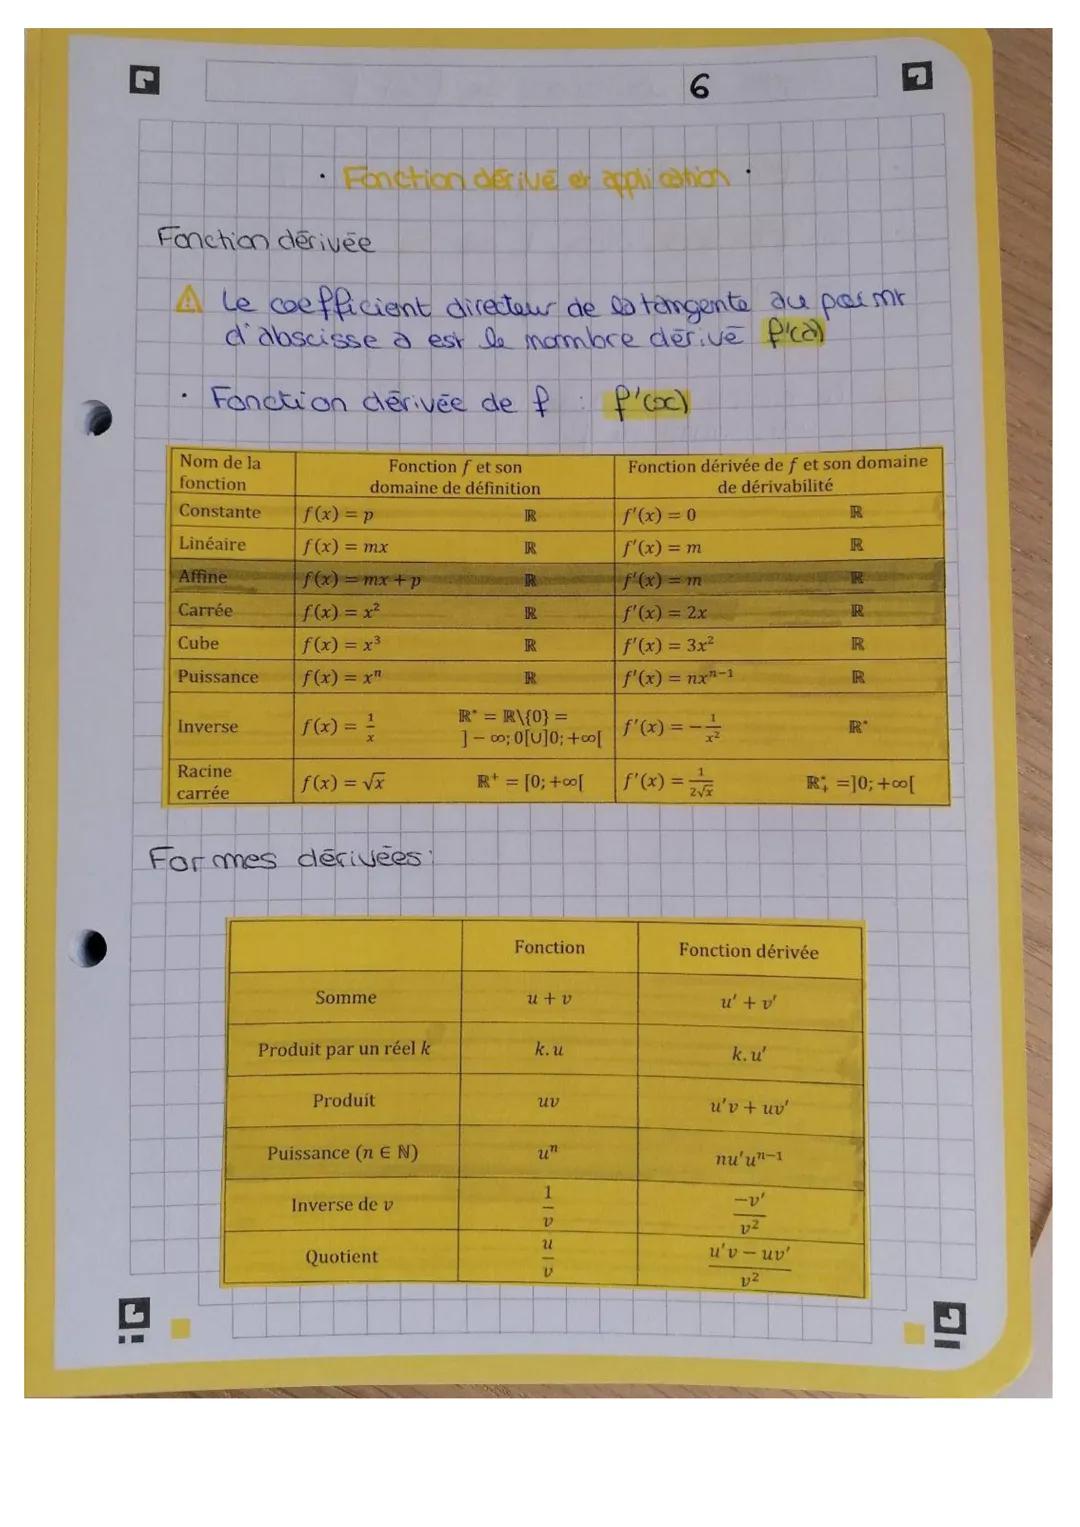 6
· Fonction dérivé et application ·
Fonction dérivée
⚠ Le coefficient directeur de la tangente au point
d'abscisse a est le nombre dérivé f'(a)
· Fonction dérivée de f : f'(x)
Nom de la fonction | Fonction f et son domaine de définition | Fonction dérivée de f et son domaine de dérivabilité
Constante | f(x) = p ℝ | f'(x) = 0 ℝ
Linéaire | f(x) = mx ℝ | f'(x) = m ℝ
Affine | f(x) = mx + p ℝ | f'(x) = m ℝ
Carrée | f(x) = x² ℝ | f'(x) = 2x ℝ
Cube | f(x) = x³ ℝ | f'(x) = 3x² ℝ
Puissance | f(x) = xⁿ ℝ | f'(x) = nxⁿ⁻¹ ℝ
Inverse | f(x) = 1/x ℝ* = ℝ\{0} = ]−∞; 0[∪]0; +∞[ | f'(x) = −1/x² ℝ*
Racine carrée | f(x) = √x ℝ⁺ = [0; +∞[ | f'(x) = 1/(2√x) ℝ*₊ =]0; +∞[
Formes dérivées :
Fonction | Fonction dérivée
Somme | u + v | u' + v'
Produit par un réel k | k.u | k.u'
Produit | uv | u'v + uv'
Puissance (n ∈ ℕ) | uⁿ | nu'uⁿ⁻¹
Inverse de v | 1/v | −v'/v²
Quotient | u/v | (u'v − uv')/v²